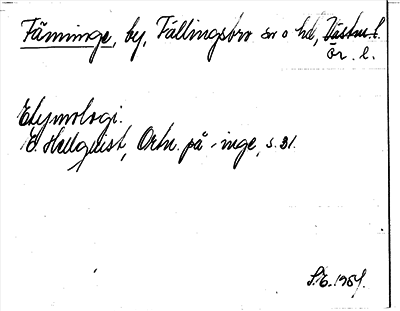 Fäninge, by, Fällingsbro sn o hd, Västm. l.
Ör. l.
Etymologi.
E. Hellquist, Ortn. på -inge, s. 31.
S.E. 1954.